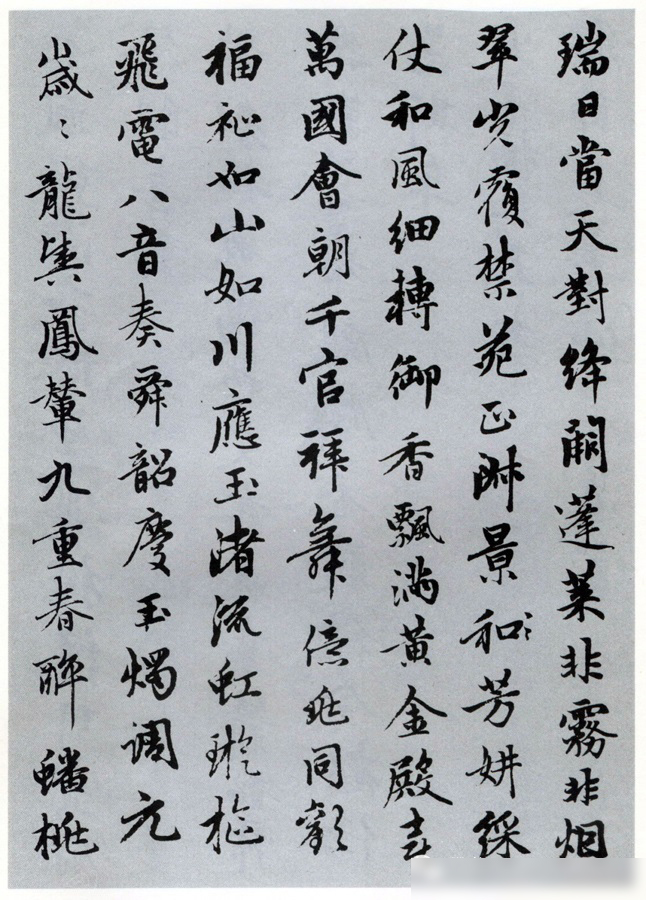 瑞日當天對絳闕蓬萊非霧非烟
翠光覆禁苑正淑景和芳妍綵
仗和風細轉御香飄滿黃金殿喜
萬國會朝千官拜舞億兆同歡
福祉如山如川應玉渚流虹璇樞
飛電八音奏舜韶慶玉燭調元
歲〻龍輿鳳輦九重春醉蟠桃